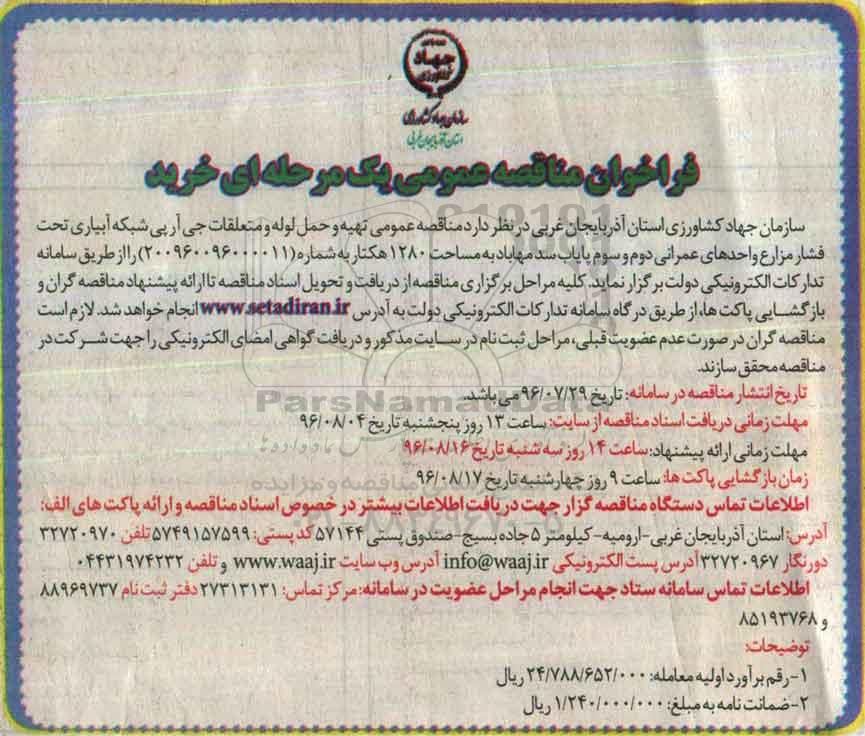 جهاد
سازمان جهاد کشاورزی
استان آذربایجان غربی
فراخوان مناقصه عمومی یک مرحله ای خرید
سازمان جهاد کشاورزی استان آذربایجان غربی در نظر دارد مناقصه عمومی تهیه و حمل لوله و متعلقات جی آر پی شبکه آبیاری تحت
فشار مزارع واحدهای عمرانی دوم و سوم پایاب سد مهاباد به مساحت ۱۲۸۰ هکتار به شماره (۲۰۰۹۶۰۰۹۶۰۰۰۰۱۱) را از طریق سامانه
تدارکات الکترونیکی دولت برگزار نماید. کلیه مراحل برگزاری مناقصه از دریافت و تحویل اسناد مناقصه تا ارائه پیشنهاد مناقصه گران و
بازگشایی پاکت ها، از طریق درگاه سامانه تدارکات الکترونیکی دولت به آدرس www.setadiran.ir انجام خواهد شد. لازم است
مناقصه گران در صورت عدم عضویت قبلی، مراحل ثبت نام در سایت مذکور و دریافت گواهی امضای الکترونیکی را جهت شرکت در
مناقصه محقق سازند.
تاریخ انتشار مناقصه در سامانه: تاریخ ۹۶/۰۷/۲۹ می باشد.
ParsNamadData
مهلت زمانی دریافت اسناد مناقصه از سایت: ساعت ۱۳ روز پنجشنبه تاریخ ۹۶/۰۸/۰۴
مهلت زمانی ارائه پیشنهاد: ساعت ۱۴ روز سه شنبه تاریخ ۹۶/۰۸/۱۶
زمان بازگشایی پاکت ها: ساعت ۹ روز چهارشنبه تاریخ ۹۶/۰۸/۱۷
اطلاعات تماس دستگاه مناقصه گزار جهت دریافت اطلاعات بیشتر در خصوص اسناد مناقصه و ارائه پاکت های الف:
آدرس: استان آذربایجان غربی-ارومیه-کیلومتر ۵ جاده بسیج-صندوق پستی ۵۷۱۴۴ کد پستی: ۵۷۴۹۱۵۷۵۹۹ تلفن ۳۲۷۲۰۹۷۰
دورنگار ۳۲۷۲۰۹۶۷ آدرس پست الکترونیکی info@waaj.ir آدرس وب سایت www.waaj.ir و تلفن ۰۴۴۳۱۹۷۴۲۳۲
اطلاعات تماس سامانه ستاد جهت انجام مراحل عضویت در سامانه: مرکز تماس: ۲۷۳۱۳۱۳۱ دفتر ثبت نام ۸۸۹۶۹۷۳۷
و ۸۵۱۹۳۷۶۸
توضیحات:
۱-رقم برآورد اولیه معامله: ۲۴/۷۸۸/۶۵۲/۰۰۰ ریال
۲-ضمانت نامه به مبلغ: ۱/۲۴۰/۰۰۰/۰۰۰ ریال